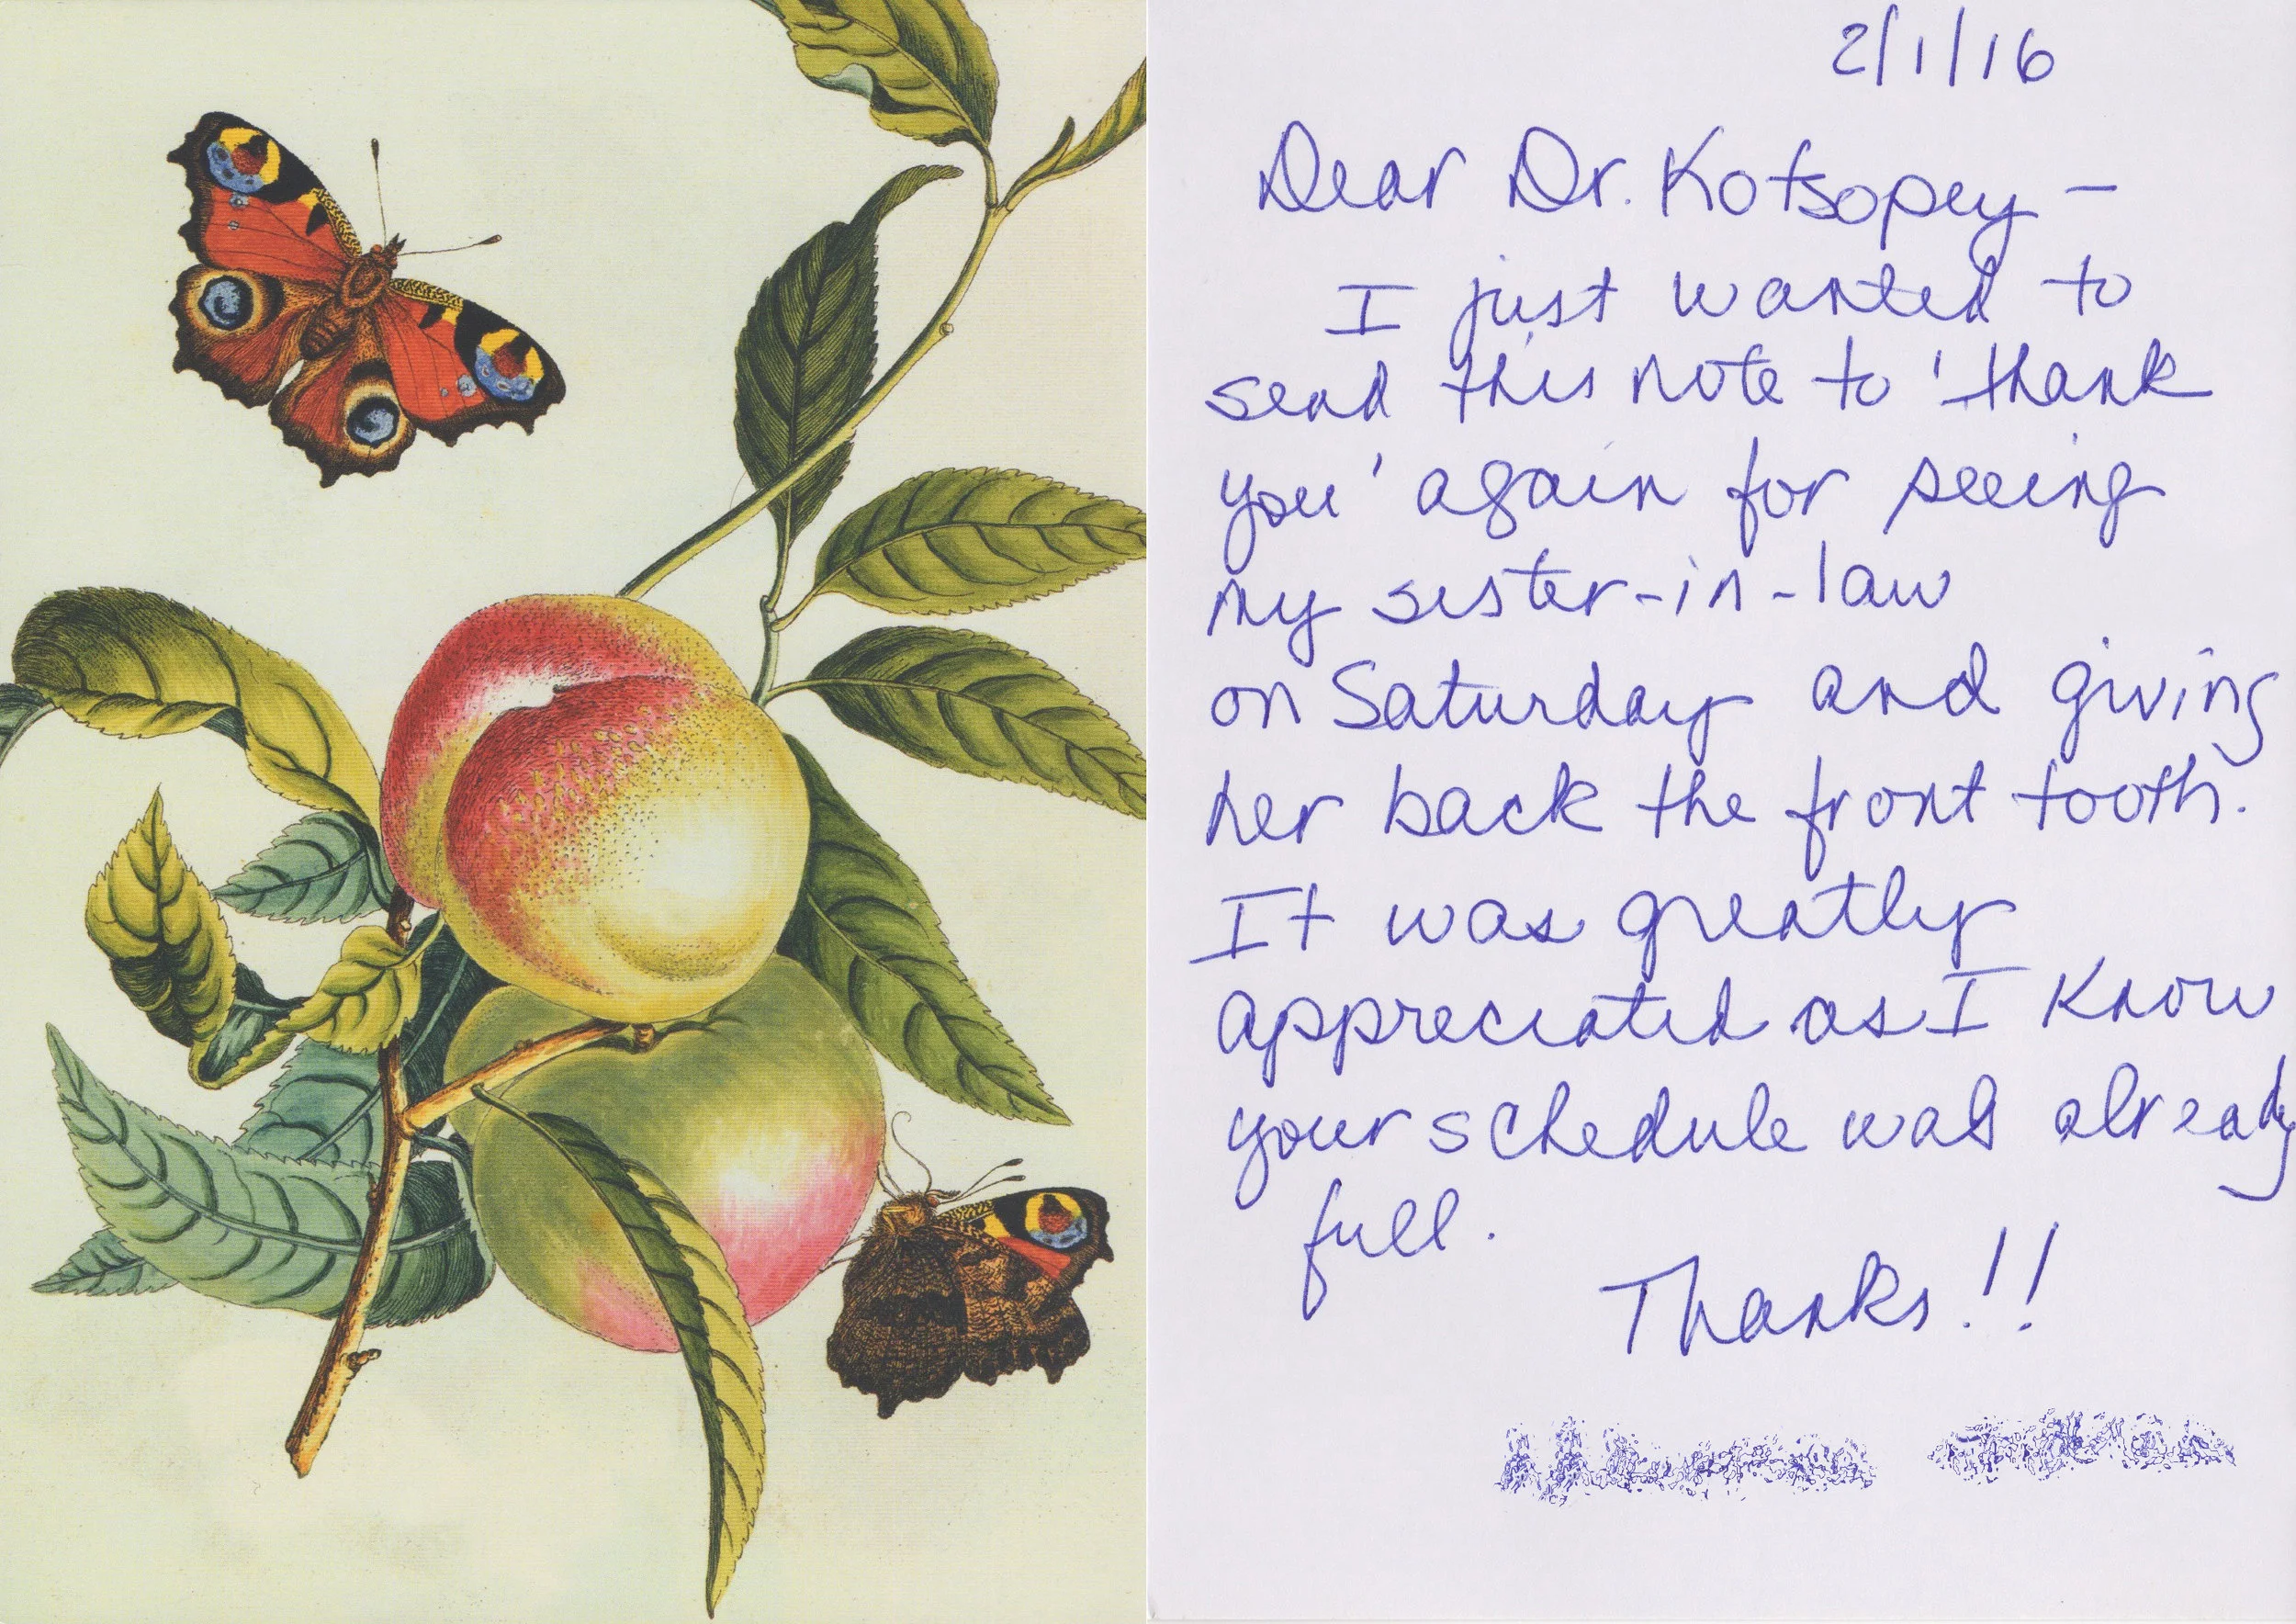 2/1/16
Dear Dr. Kotsopey -
I just wanted to
send this note to 'thank
you' again for seeing
my sister-in-law
on Saturday and giving
her back the front tooth.
It was greatly
appreciated as I know
your schedule was already
full.
Thanks!!